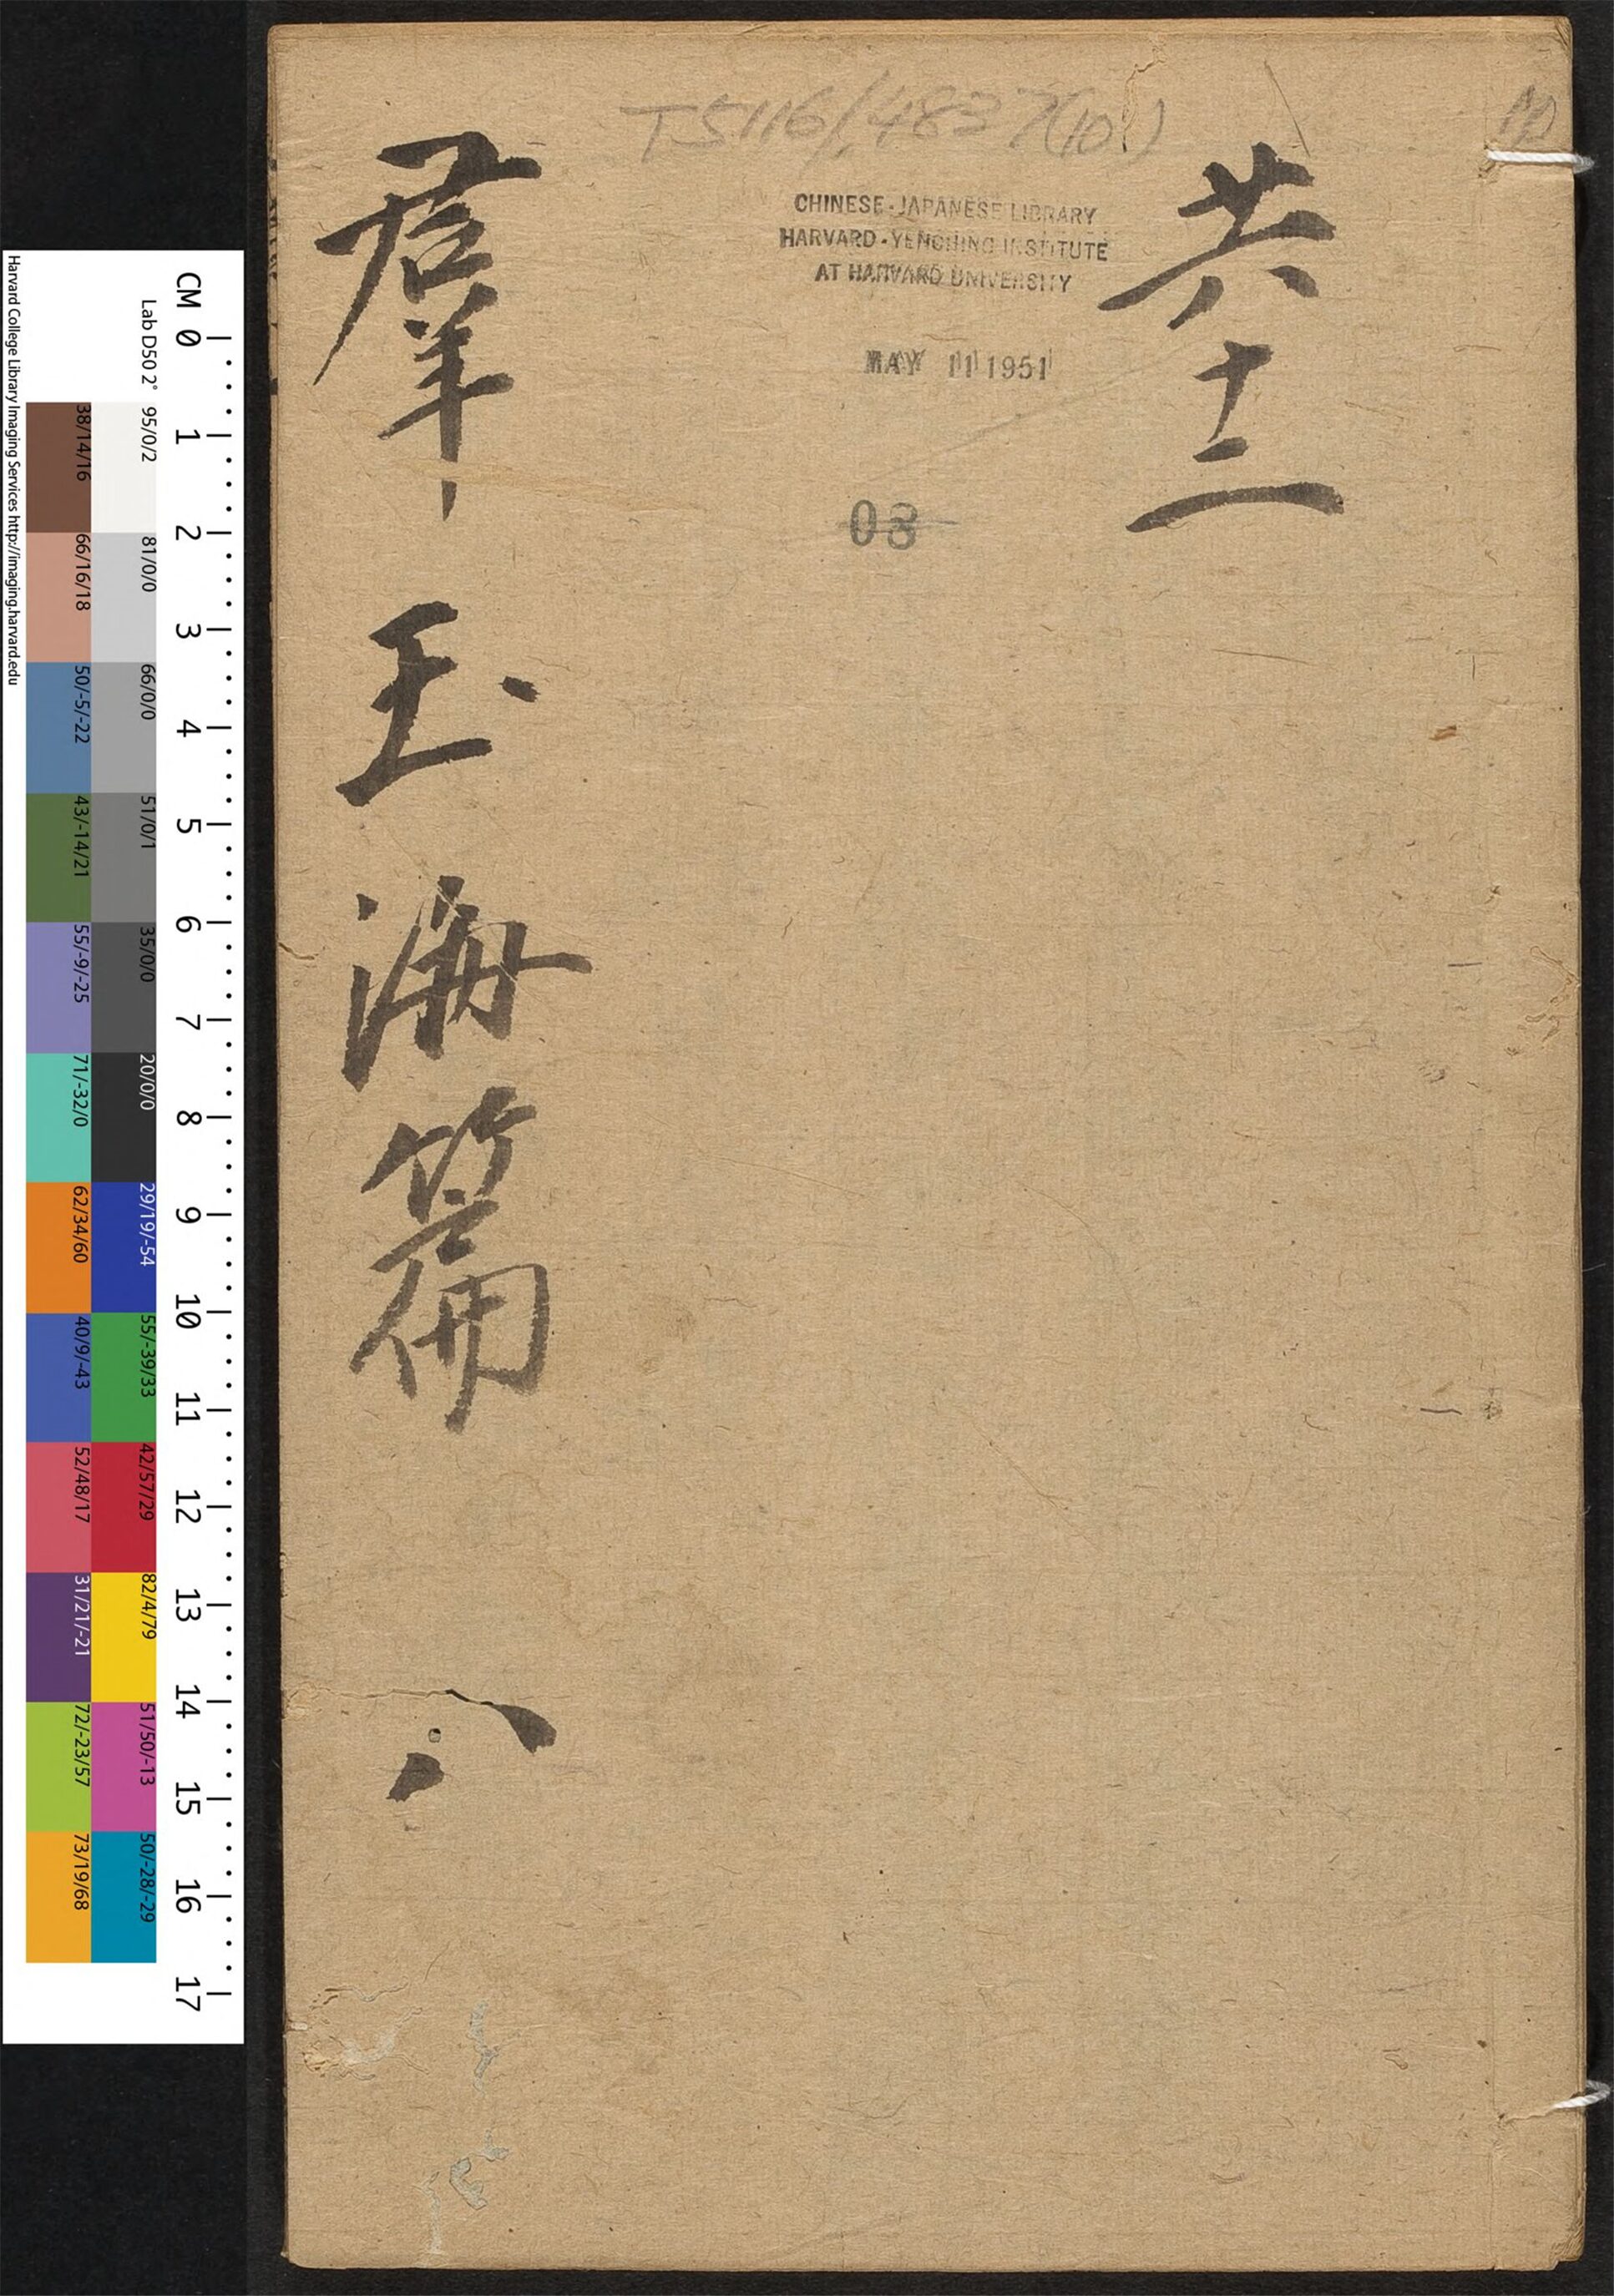 T5116/4837(10)
10
CHINESE-JAPANESE LIBRARY
HARVARD-YENCHING INSTITUTE
AT HARVARD UNIVERSITY
MAY 11 1951
08
共十二
羣玉海篇
八
Harvard College Library Imaging Services http://imaging.harvard.edu
Lab D50 2°
CM 0 1 2 3 4 5 6 7 8 9 10 11 12 13 14 15 16 17
95/0/2
81/0/0
66/0/0
51/0/1
35/0/0
20/0/0
29/19/-54
55/-39/33
42/57/29
82/4/79
51/50/-13
50/-28/-29
38/14/16
66/16/18
50/-5/-22
43/-14/21
55/-9/-25
71/-32/0
62/34/60
40/9/-43
52/48/17
31/21/-21
72/-23/57
73/19/68